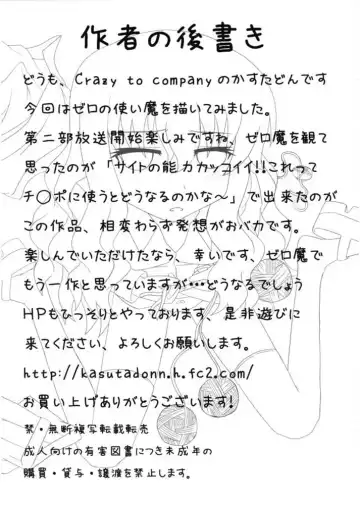 作者の後書き
どうも、Crazy to companyのかすたどんです
今回はゼロの使い魔を描いてみました。
第二部放送開始楽しみですね、ゼロ魔を観て
思ったのが「サイトの能力カッコイイ!!これって
チ〇ポに使うとどうなるのかな～」で出来たのが
この作品、相変わらず発想がおバカです。
楽しんでいただけたなら、幸いです、ゼロ魔で
もう一作と思っていますが・・・どうなるでしょう
HPもひっそりとやっております、是非遊びに
来てください、よろしくお願いします。
http://kasutadonn.h.fc2.com/
お買い上げありがとうございます!
禁・無断複写転載転売
成人向けの有害図書につき未成年の
購買・貸与・譲渡を禁止します。